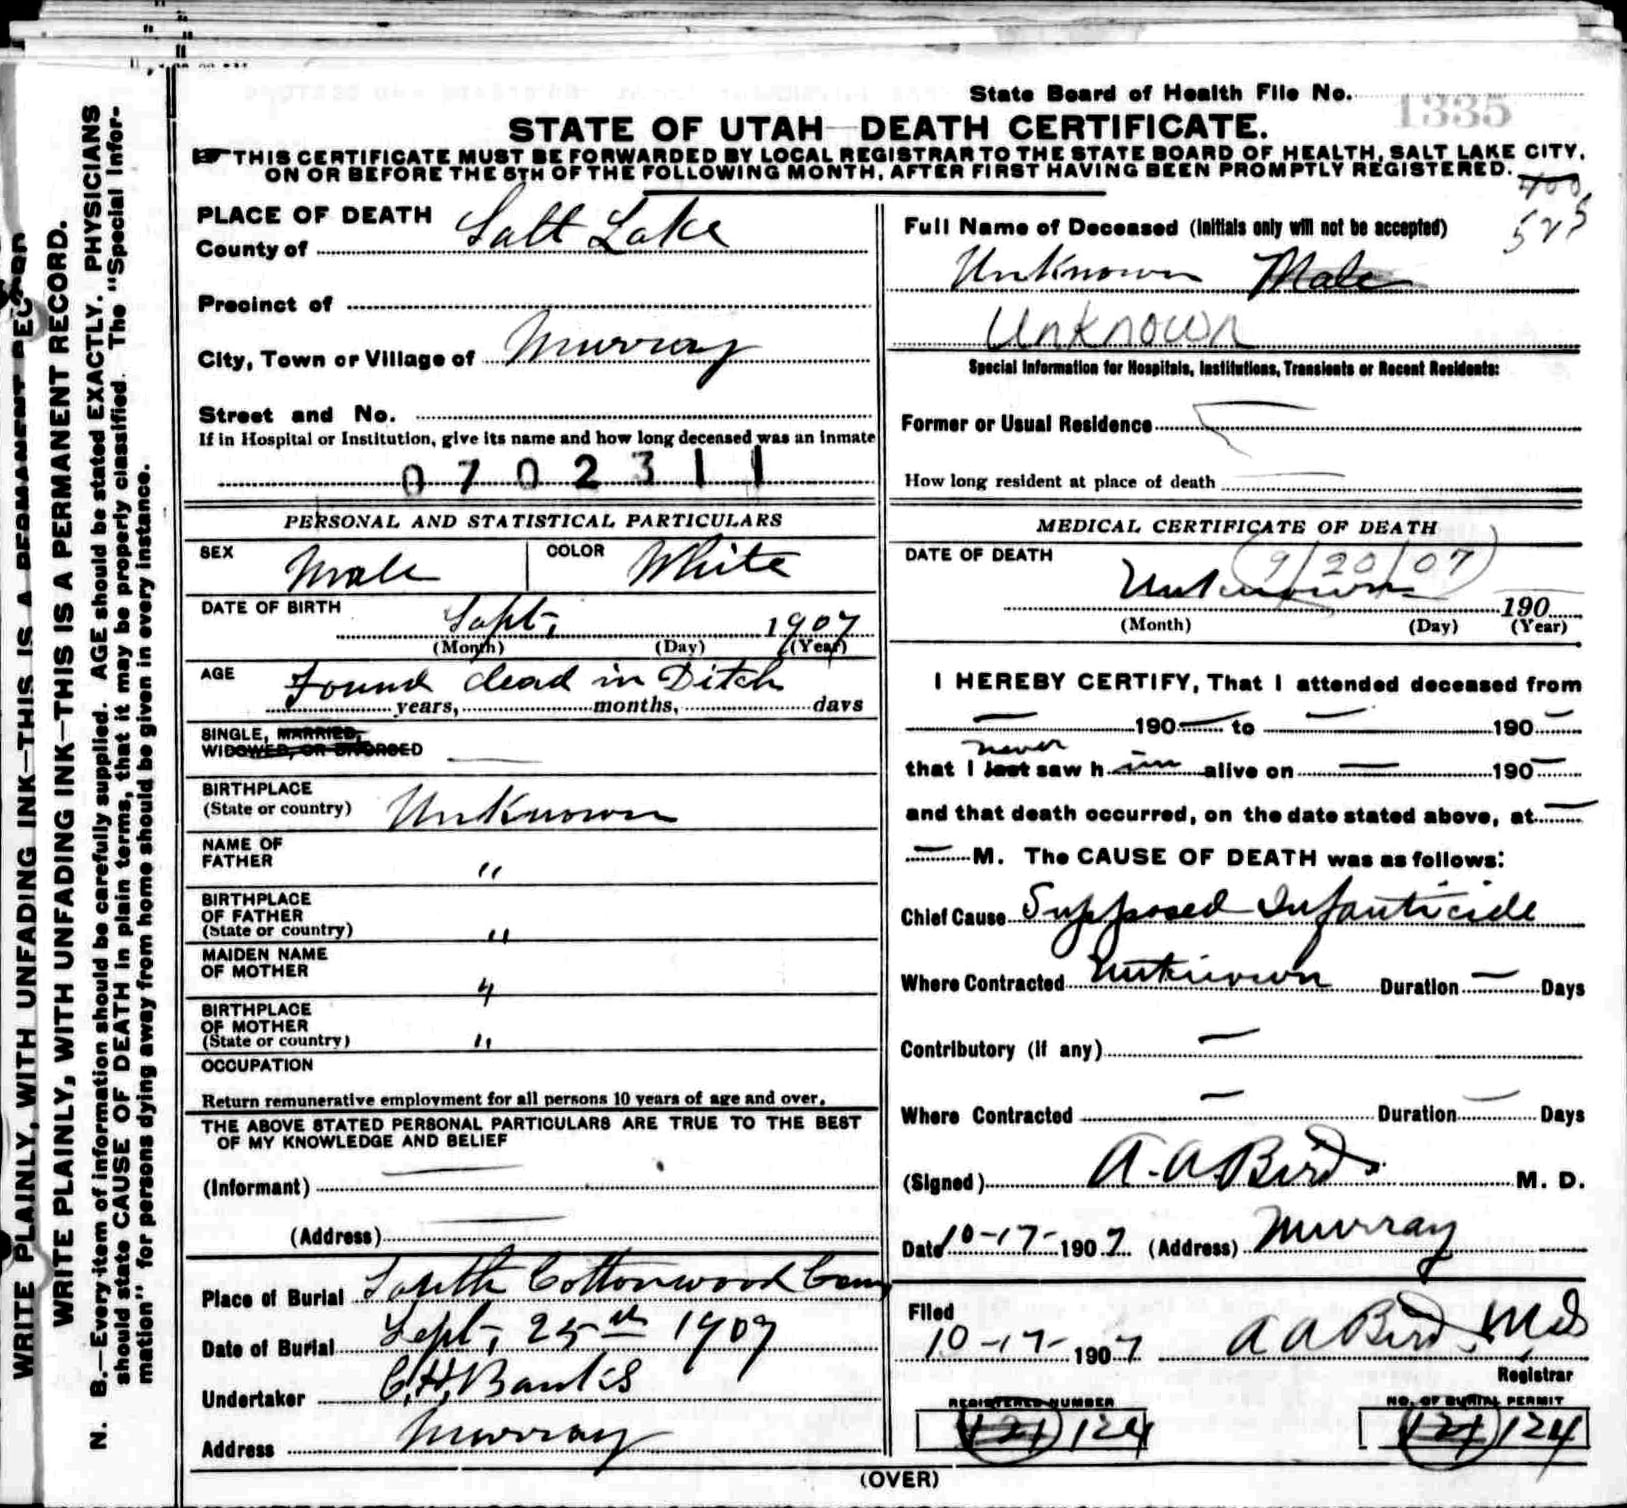 State Board of Health File No. 1335
STATE OF UTAH—DEATH CERTIFICATE.
☞ THIS CERTIFICATE MUST BE FORWARDED BY LOCAL REGISTRAR TO THE STATE BOARD OF HEALTH, SALT LAKE CITY,
ON OR BEFORE THE 5TH OF THE FOLLOWING MONTH, AFTER FIRST HAVING BEEN PROMPTLY REGISTERED.
WRITE PLAINLY, WITH UNFADING INK—THIS IS A PERMANENT RECORD
WRITE PLAINLY, WITH UNFADING INK—THIS IS A PERMANENT RECORD.
N. B.—Every item of information should be carefully supplied. AGE should be stated EXACTLY. PHYSICIANS
should state CAUSE OF DEATH in plain terms, that it may be properly classified. The "Special Infor-
mation" for persons dying away from home should be given in every instance.
PLACE OF DEATH
County of Salt Lake
Precinct of
City, Town or Village of Murray
Street and No.
If in Hospital or Institution, give its name and how long deceased was an inmate
0702311
PERSONAL AND STATISTICAL PARTICULARS
SEX Male COLOR White
DATE OF BIRTH Sept, 1907
(Month) (Day) (Year)
AGE Found dead in Ditch
years, months, days
SINGLE, MARRIED,
WIDOWED, OR DIVORCED —
BIRTHPLACE
(State or country) Unknown
NAME OF
FATHER "
BIRTHPLACE
OF FATHER
(State or country) "
MAIDEN NAME
OF MOTHER "
BIRTHPLACE
OF MOTHER
(State or country) "
OCCUPATION
Return remunerative employment for all persons 10 years of age and over.
THE ABOVE STATED PERSONAL PARTICULARS ARE TRUE TO THE BEST
OF MY KNOWLEDGE AND BELIEF
(Informant) —
(Address) —
Place of Burial South Cottonwood Cem
Date of Burial Sept, 25th 1907
Undertaker C.H. Banks
Address Murray
400
525
Full Name of Deceased (Initials only will not be accepted)
Unknown Male
Unknown
Special Information for Hospitals, Institutions, Transients or Recent Residents:
Former or Usual Residence
How long resident at place of death
MEDICAL CERTIFICATE OF DEATH
DATE OF DEATH (9/20/07)
Unknown 190
(Month) (Day) (Year)
I HEREBY CERTIFY, That I attended deceased from
— 190— to — 190—
never
that I last saw him alive on — 190—
and that death occurred, on the date stated above, at —
— M. The CAUSE OF DEATH was as follows:
Chief Cause Supposed Infanticide
Where Contracted Unknown Duration — Days
Contributory (if any) —
Where Contracted — Duration — Days
(Signed) A. A Bird M. D.
Date 10-17- 1907. (Address) Murray
Filed
10-17- 1907 A A Bird, M.D
Registrar
REGISTERED NUMBER
121 124
NO. OF BURIAL PERMIT
121 124
(OVER)